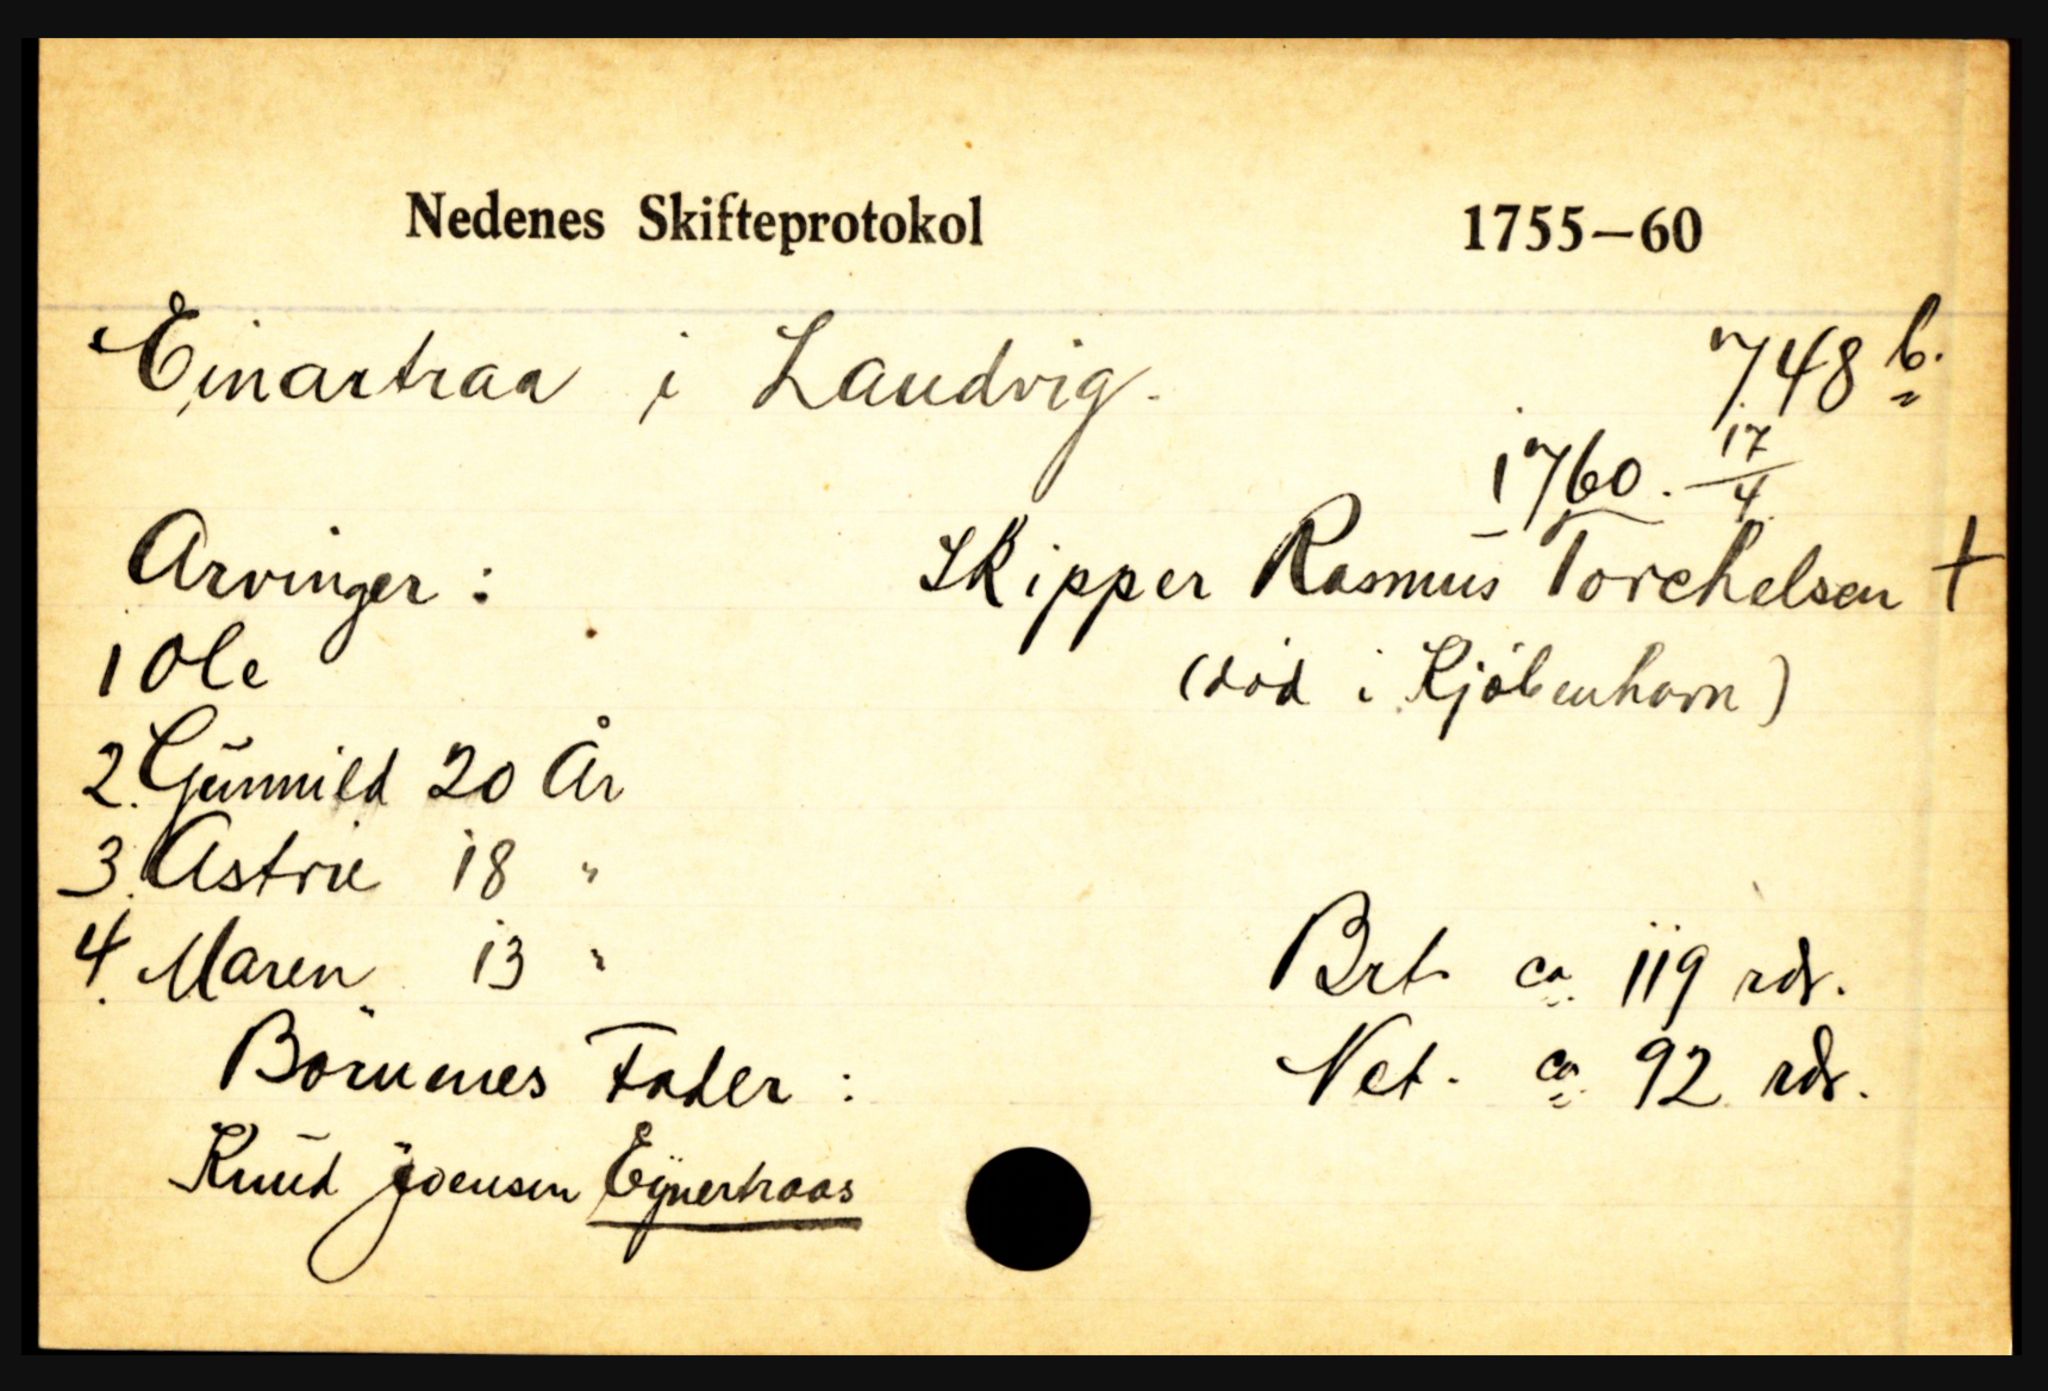 Nedenes Skifteprotokol 1755—60
Einartraa i Landvig. 748 b.
1760. 17/4
Arvinger: Skipper Rasmus Torchelsen †
1 Ole (död i Kjöbenhavn)
2. Gunnild 20 År
3. Astrie 18 "
4. Maren 13 " Brt ca 119 rdr.
Börnenes Fader: Net. ca 92 rdr.
Knud Joensen Eÿnertraas